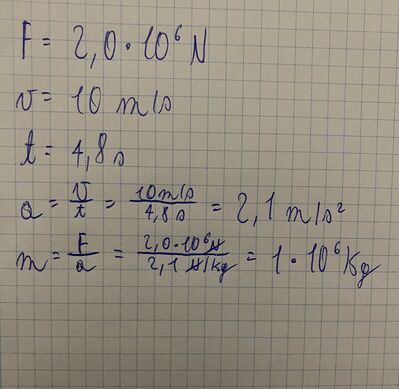 F = 2,0·10⁶ N
v = 10 m/s
t = 4,8 s
a = v/t = 10 m/s / 4,8 s = 2,1 m/s²
m = F/a = 2,0·10⁶ N / 2,1 N/kg = 1·10⁶ kg